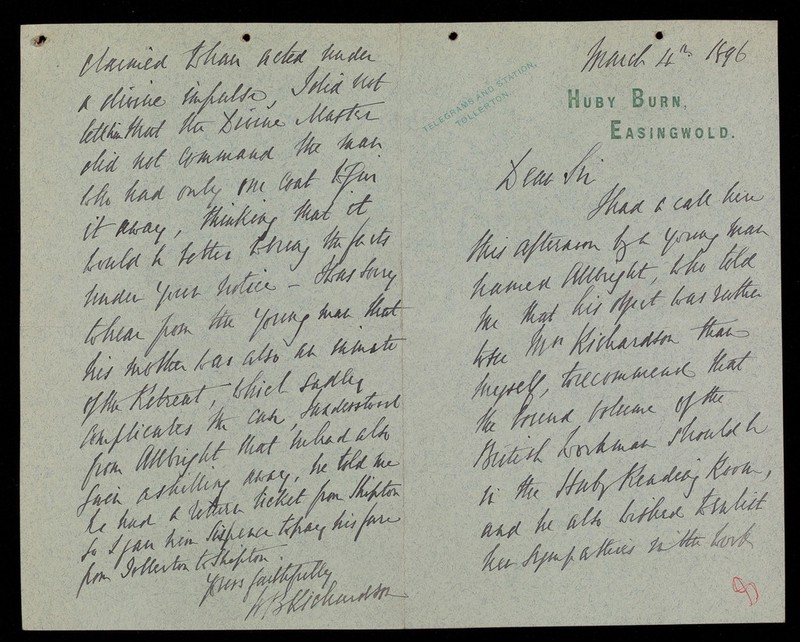 March 4th 1896
TELEGRAMS AND STATION,
TOLLERTON.
HUBY BURN,
EASINGWOLD.
Dear Sir
I had a call here
this afternoon by a young man
named Allbright, who told
me that his object was rather
to see Mrs Richardson than
myself, to recommend that
the bound volume of the
British Workman should be
in the Huby Reading Room,
and he also wished to enlist
her sympathies in the work
claimed to have acted under
a divine impulse, I did not
tell him that the Divine Master
did not command the man
who had only one coat to give
it away, thinking that it
would be better to bring the facts
under your notice - I was sorry
to hear from the young man that
his mother was also an inmate
of the Retreat, which sadly
complicates the case, I understood
from Allbright that he had also
given a shilling away, he told me
he had a return ticket from Shipton
so I gave him sixpence to pay his fare
from Tollerton to Shipton.
Yours faithfully
Richardson